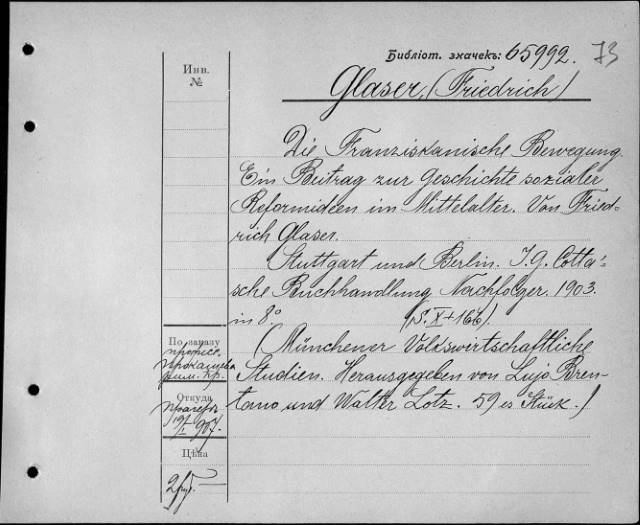 Библіот. значекъ: 65992. 73
Инв.
№
Glaser, (Friedrich)
Die Franziskanische Bewegung.
Ein Beitrag zur Geschichte sozialer
Reformideen im Mittelalter. Von Fried-
rich Glaser.
Stuttgart und Berlin. J. G. Cotta'-
sche Buchhandlung Nachfolger. 1903.
in 8° (S. X + 166).
(Münchener Volkswirtschaftliche
Studien. Herausgegeben von Lujo Bren-
tano und Walter Lotz. 59 es Stück.)
По заказу
Откуда
907.
Цѣна